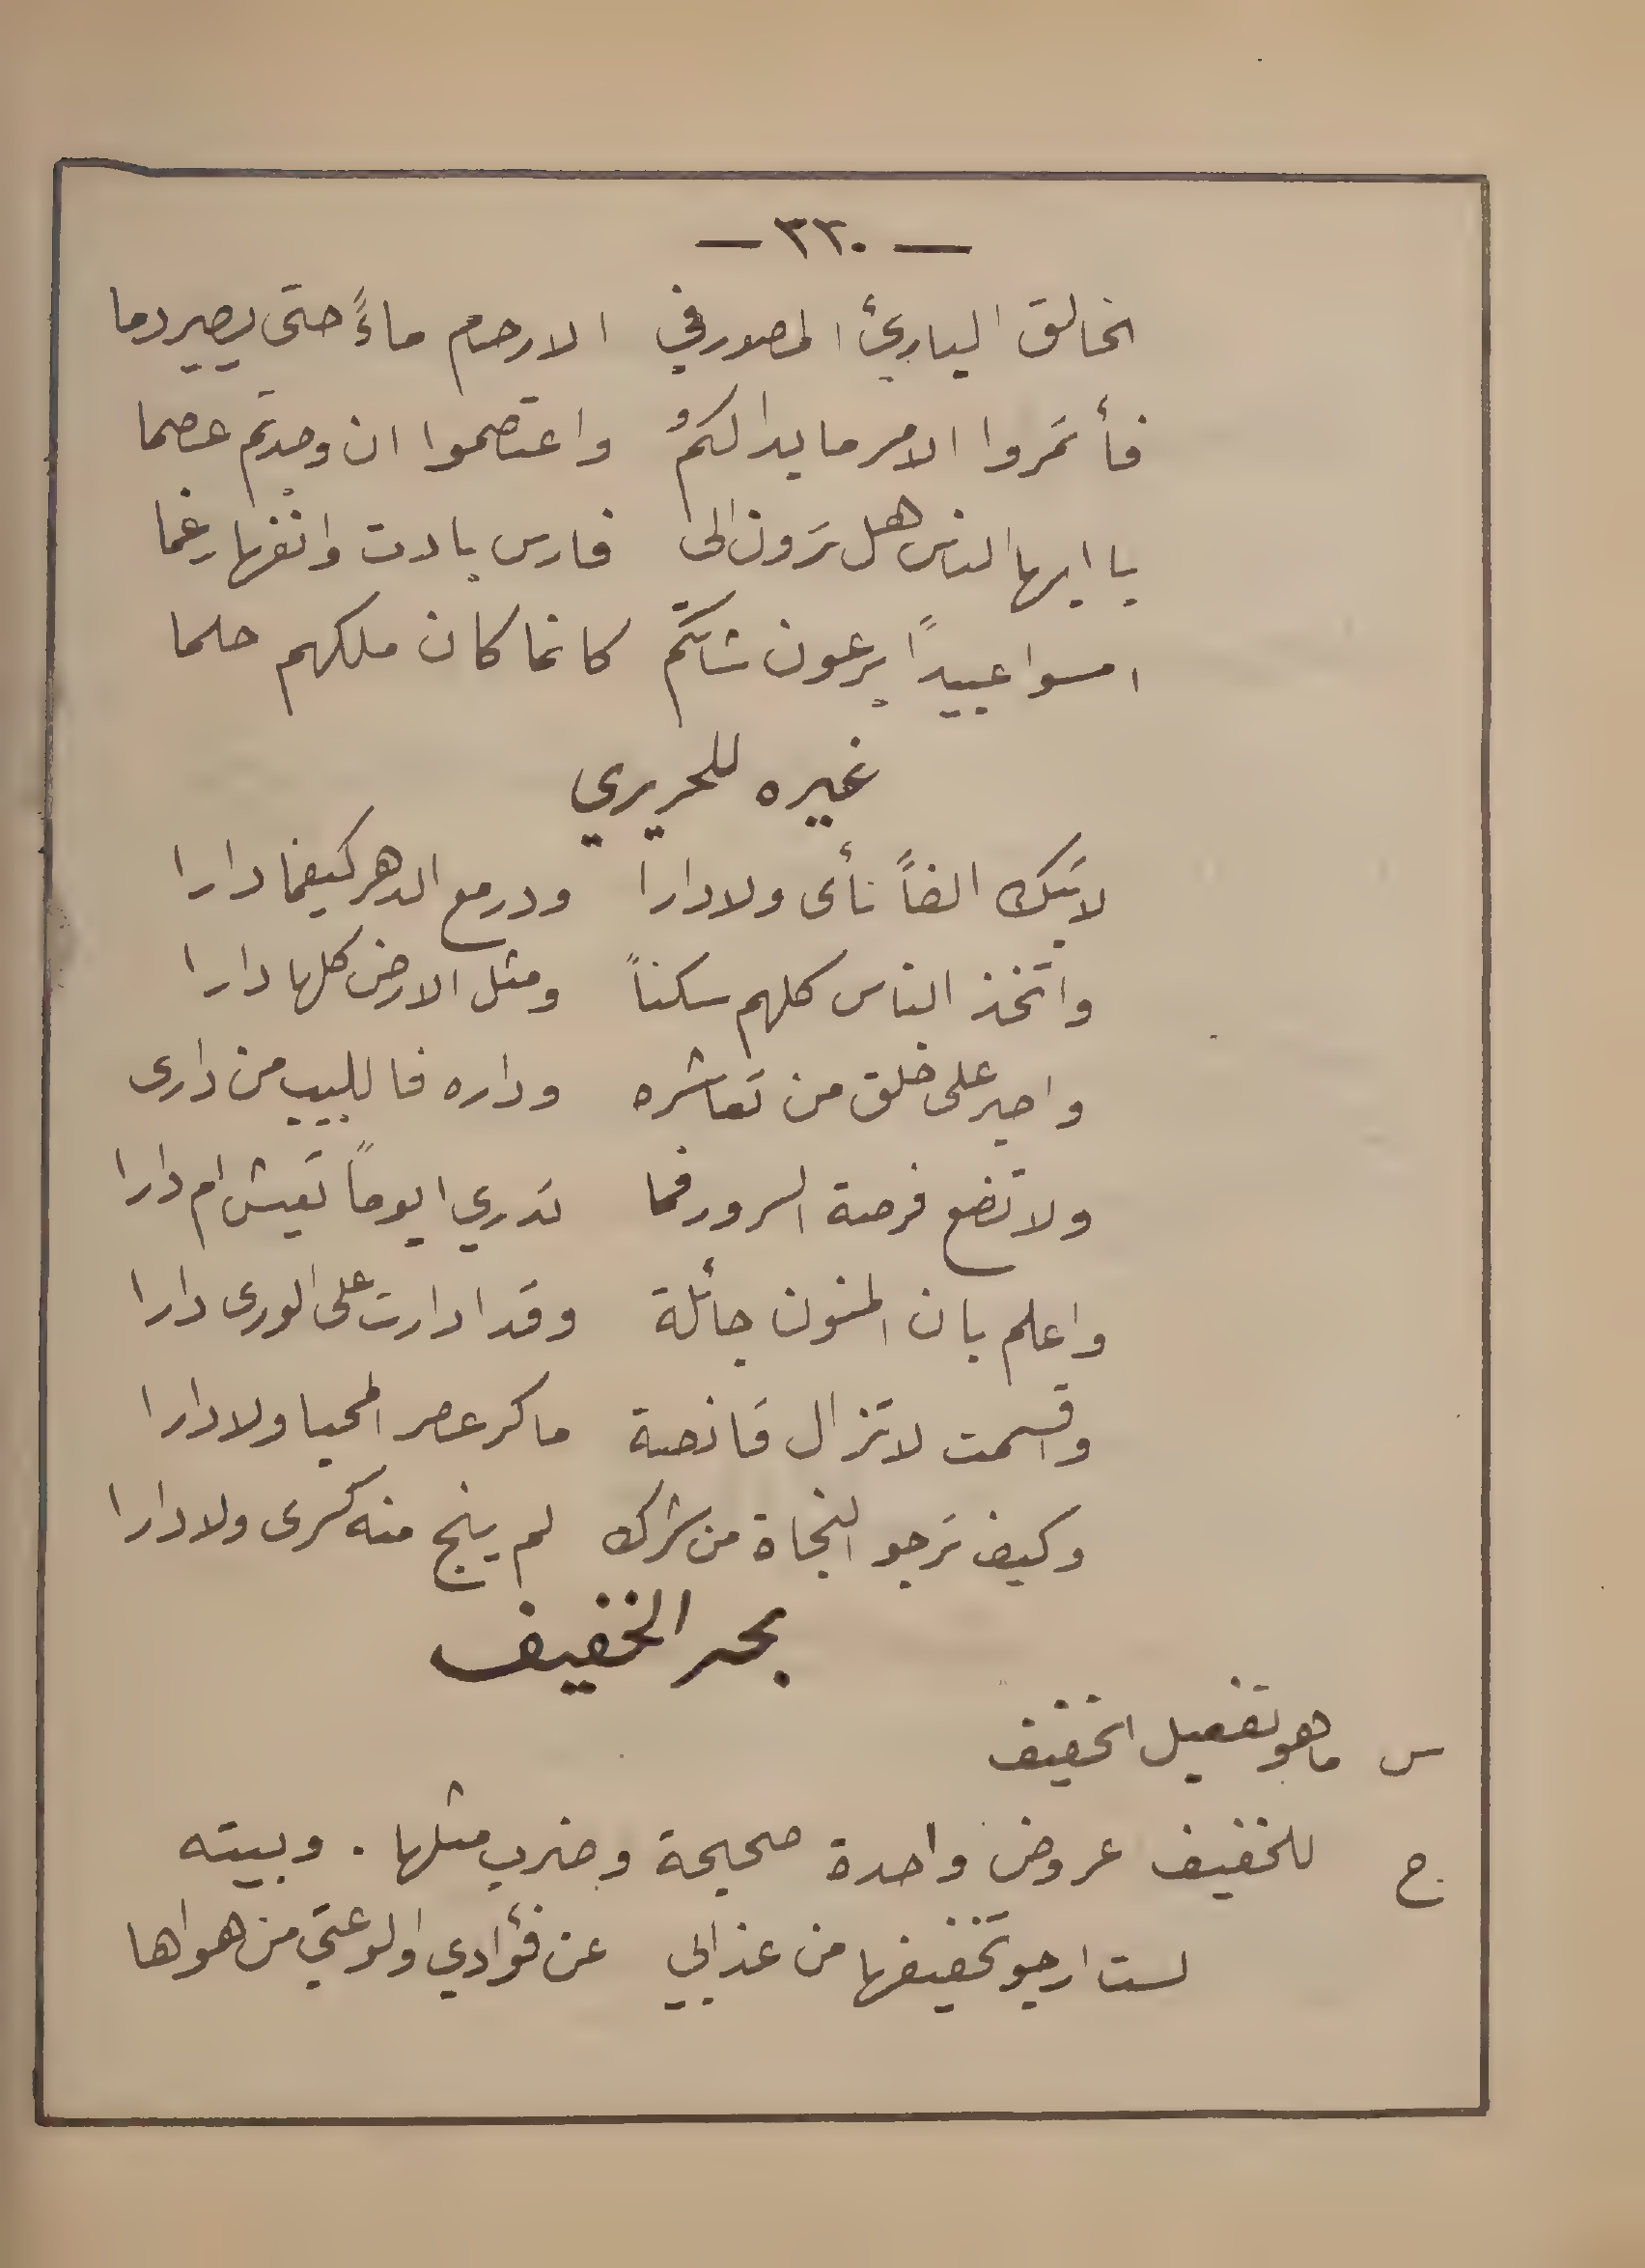 — ٣٣٠ —
الخالق الباريُ المصور في الارحام ماءً حتى يصير دما
فأتمروا الامر ما بدا لكمُ واعتصموا ان وجدتم عصما
يا ايها الناس هل ترون الى فارس بادت وانفها رغما
امسوا عبيدًا يرعون شاتكم كانما كان ملكهم حلما
غيره للحريري
لا تبك الفاً نأى ولا دارا ودر مع الدهر كيفما دارا
واتخذ الناس كلهم سكناً ومثل الارض كلها دارا
واصبر على خلق من تعاشره وداره فاللبيب من دارى
ولا تضع فرصة السرور فما تدري ايوماً تعيش ام دارا
واعلم بان المنون جائلة وقد ادارت على الورى دارا
واقسمت لا تزال قانصة ما كر عصر المحيا ولا دارا
وكيف ترجو النجاة من شرك لم ينج منه كسرى ولا دارا
بحر الخفيف
س ما هو تفعيل الخفيف
ج للخفيف عروض واحدة صحيحة وضرب مثلها . وبيته
لست ارجو تخفيفها من عذابي عن فؤادي ولوعتي من هواها